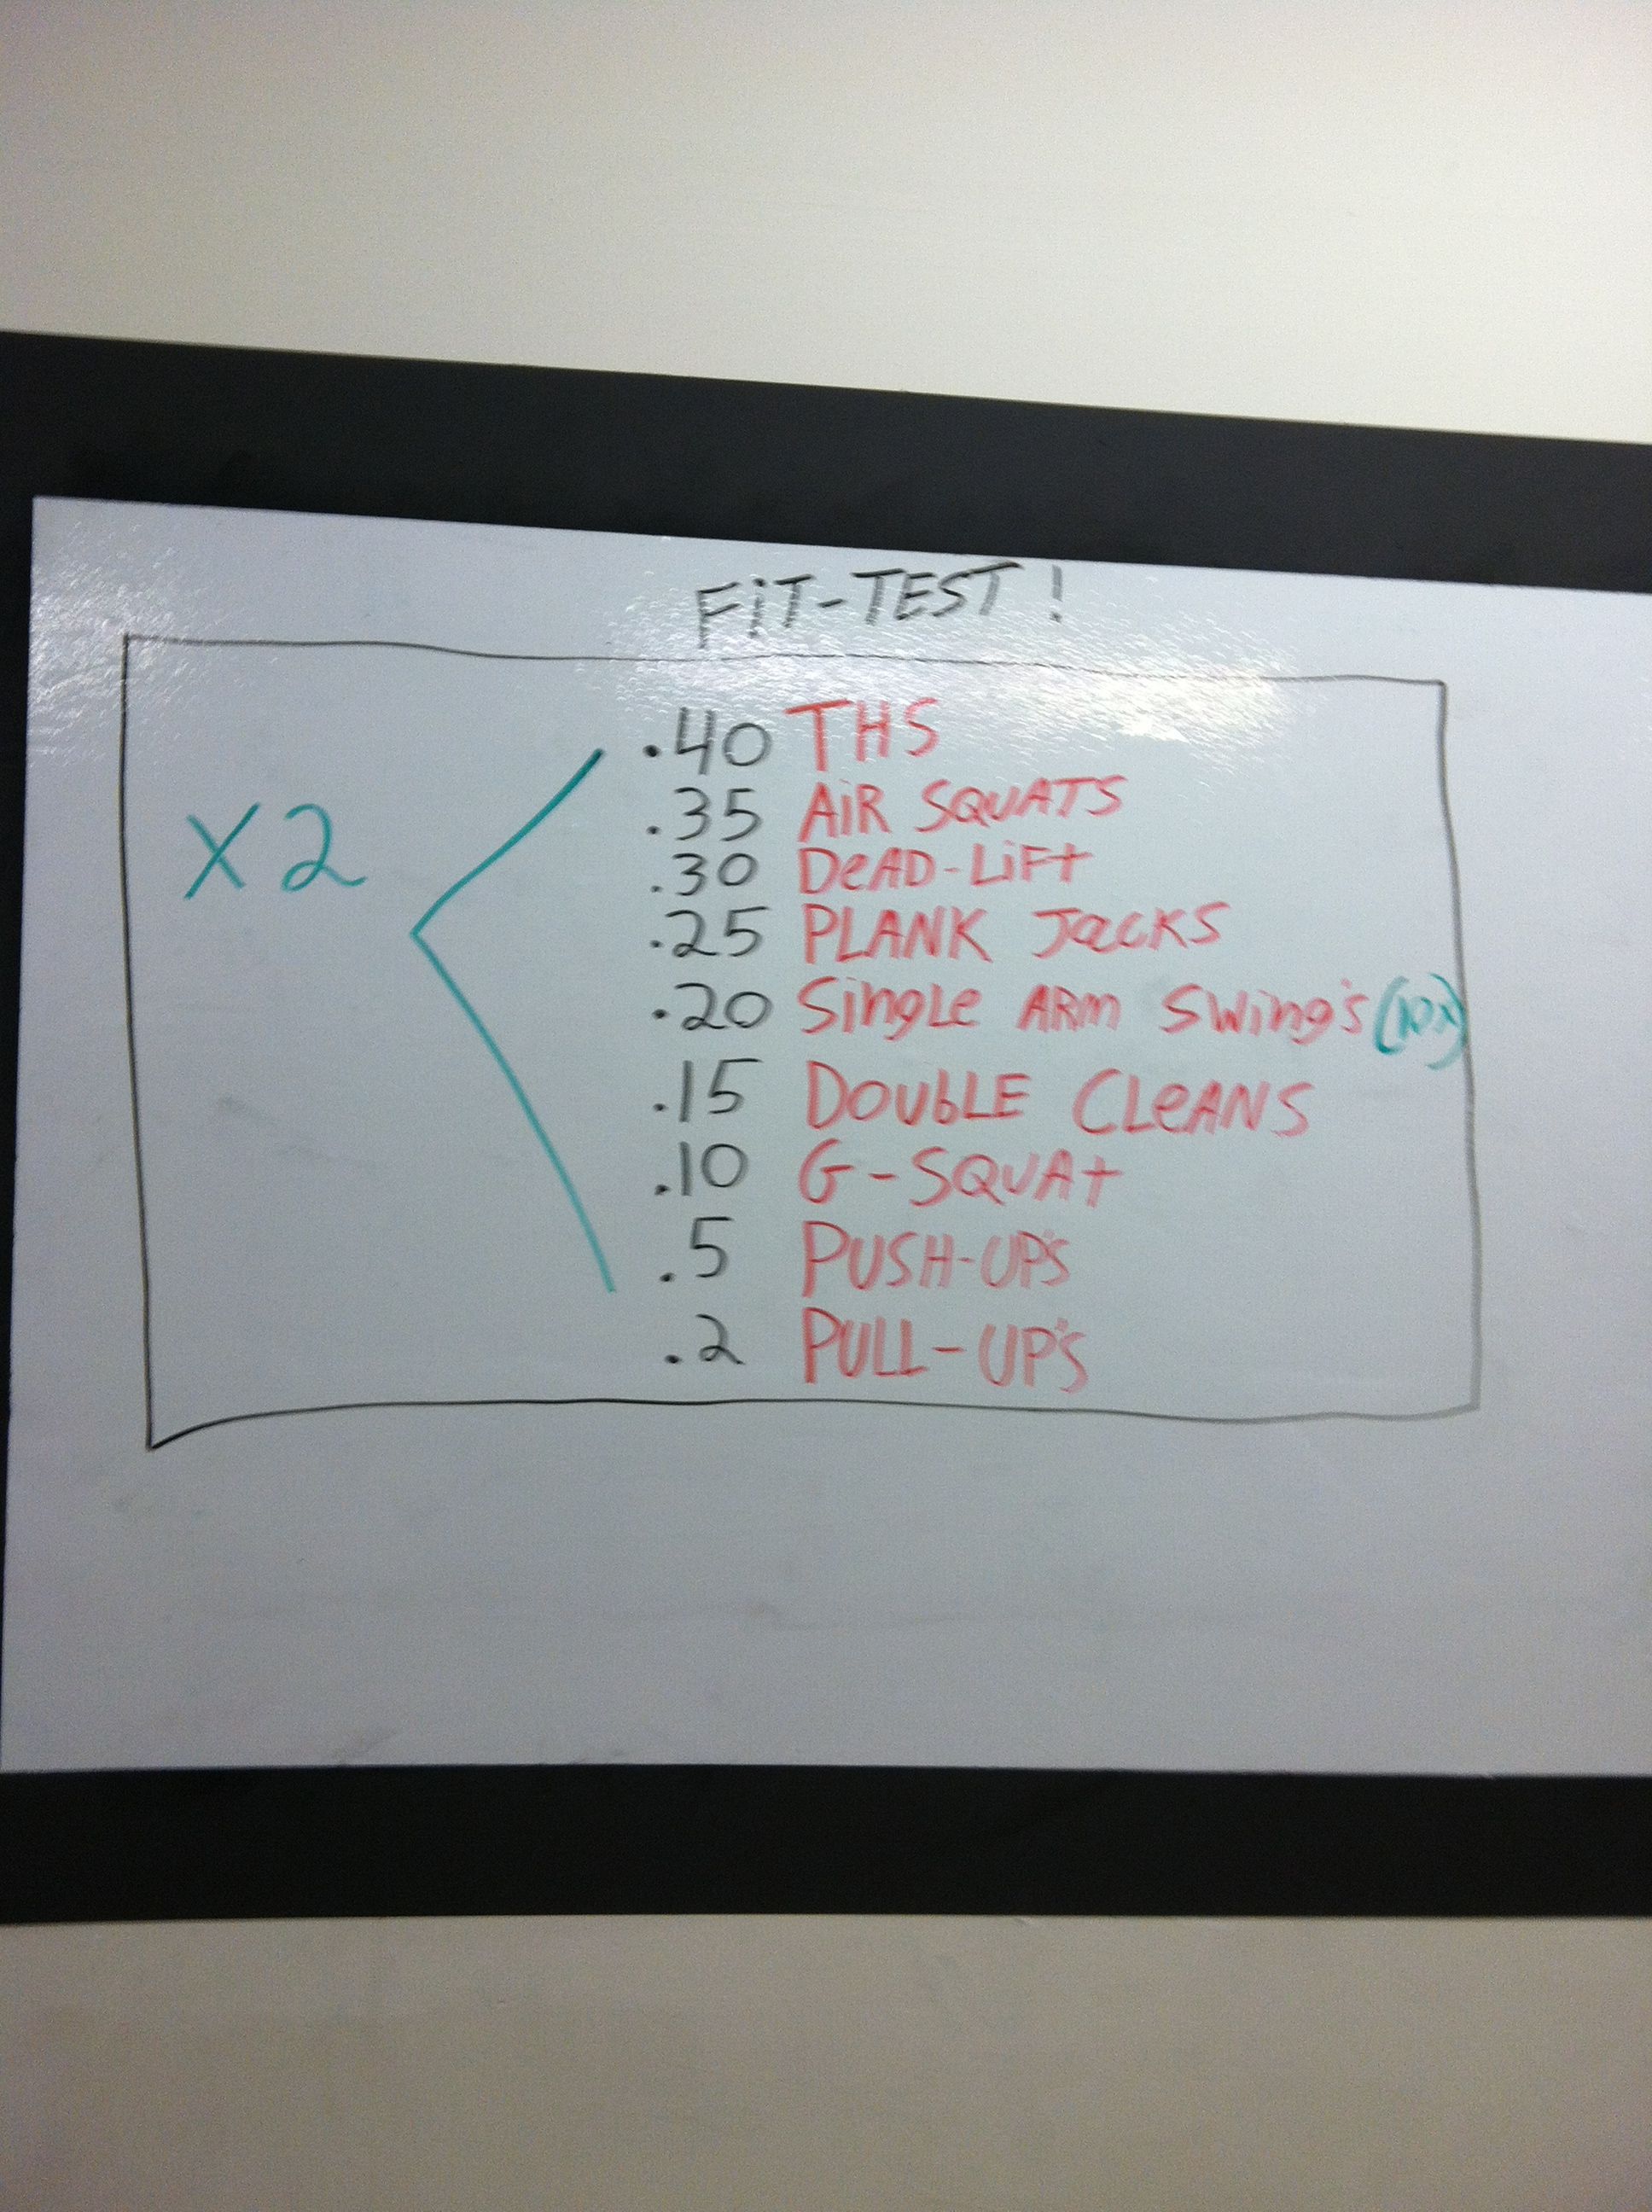 FiT-TEST!
X2
.40 THS
.35 AiR SQUATS
.30 DeAD-LiFt
.25 PLANK JacKS
.20 Single ARm Swing's
.15 DOUbLE CLeANS
.10 G-SQUAt
.5 PUSH-UP's
.2 PULL-UP's